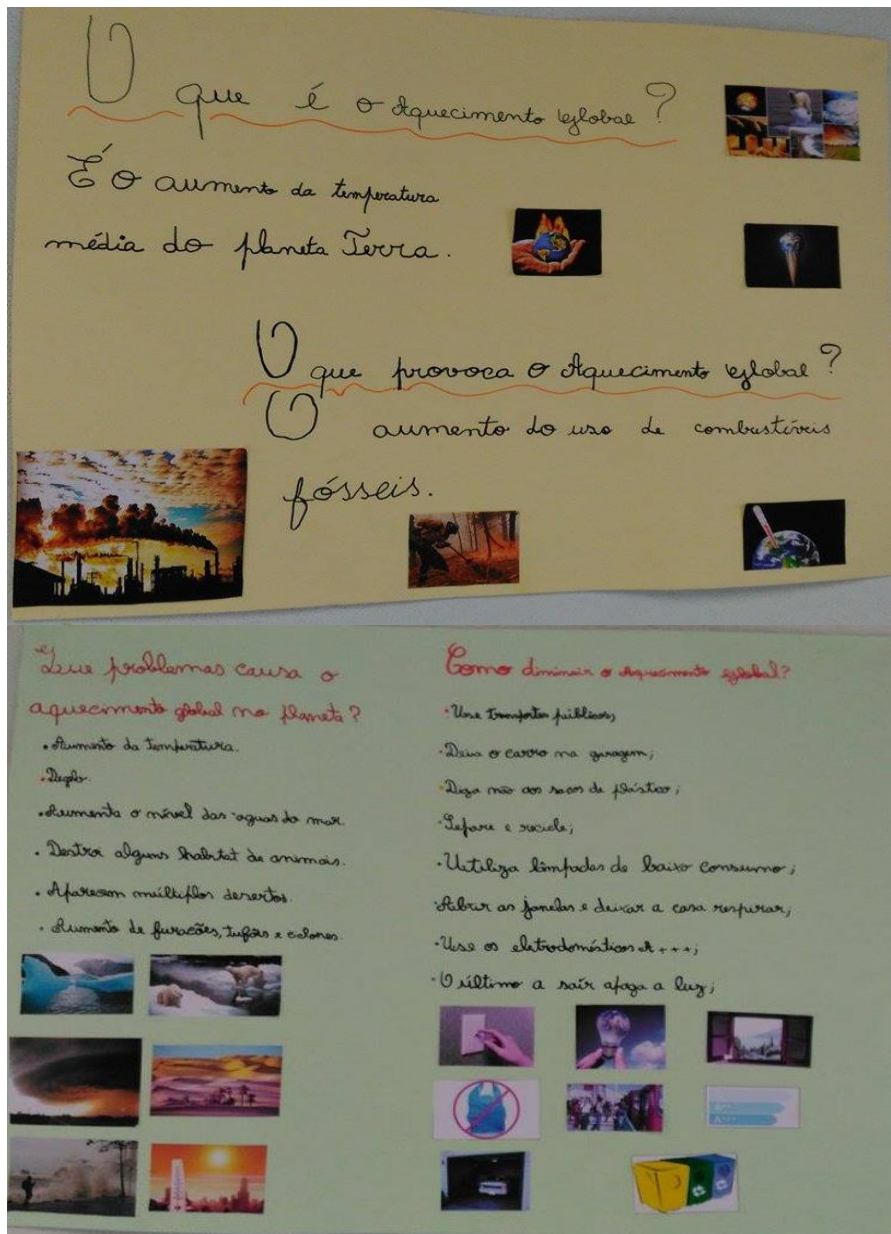 O que é o Aquecimento Global?
É o aumento da temperatura
média do planeta Terra.
O que provoca o Aquecimento Global?
O aumento do uso de combustíveis
fósseis.
Que problemas causa o
aquecimento global no planeta?
• Aumento da temperatura.
• Degelo.
• Aumenta o nível das aguas do mar.
• Destroi alguns habitat de animais.
• Aparecem múltiplos desertos.
• Aumento de furacões, tufões e ciclones.
Como diminuir o Aquecimento Global?
• Use transportes públicos;
• Deixa o carro na garagem;
• Diga não aos sacos de plástico;
• Separe e recicle;
• Utiliza lâmpadas de baixo consumo;
• Abrir as janelas e deixar a casa respirar;
• Use os eletrodomésticos A+++;
• O último a sair apaga a luz;